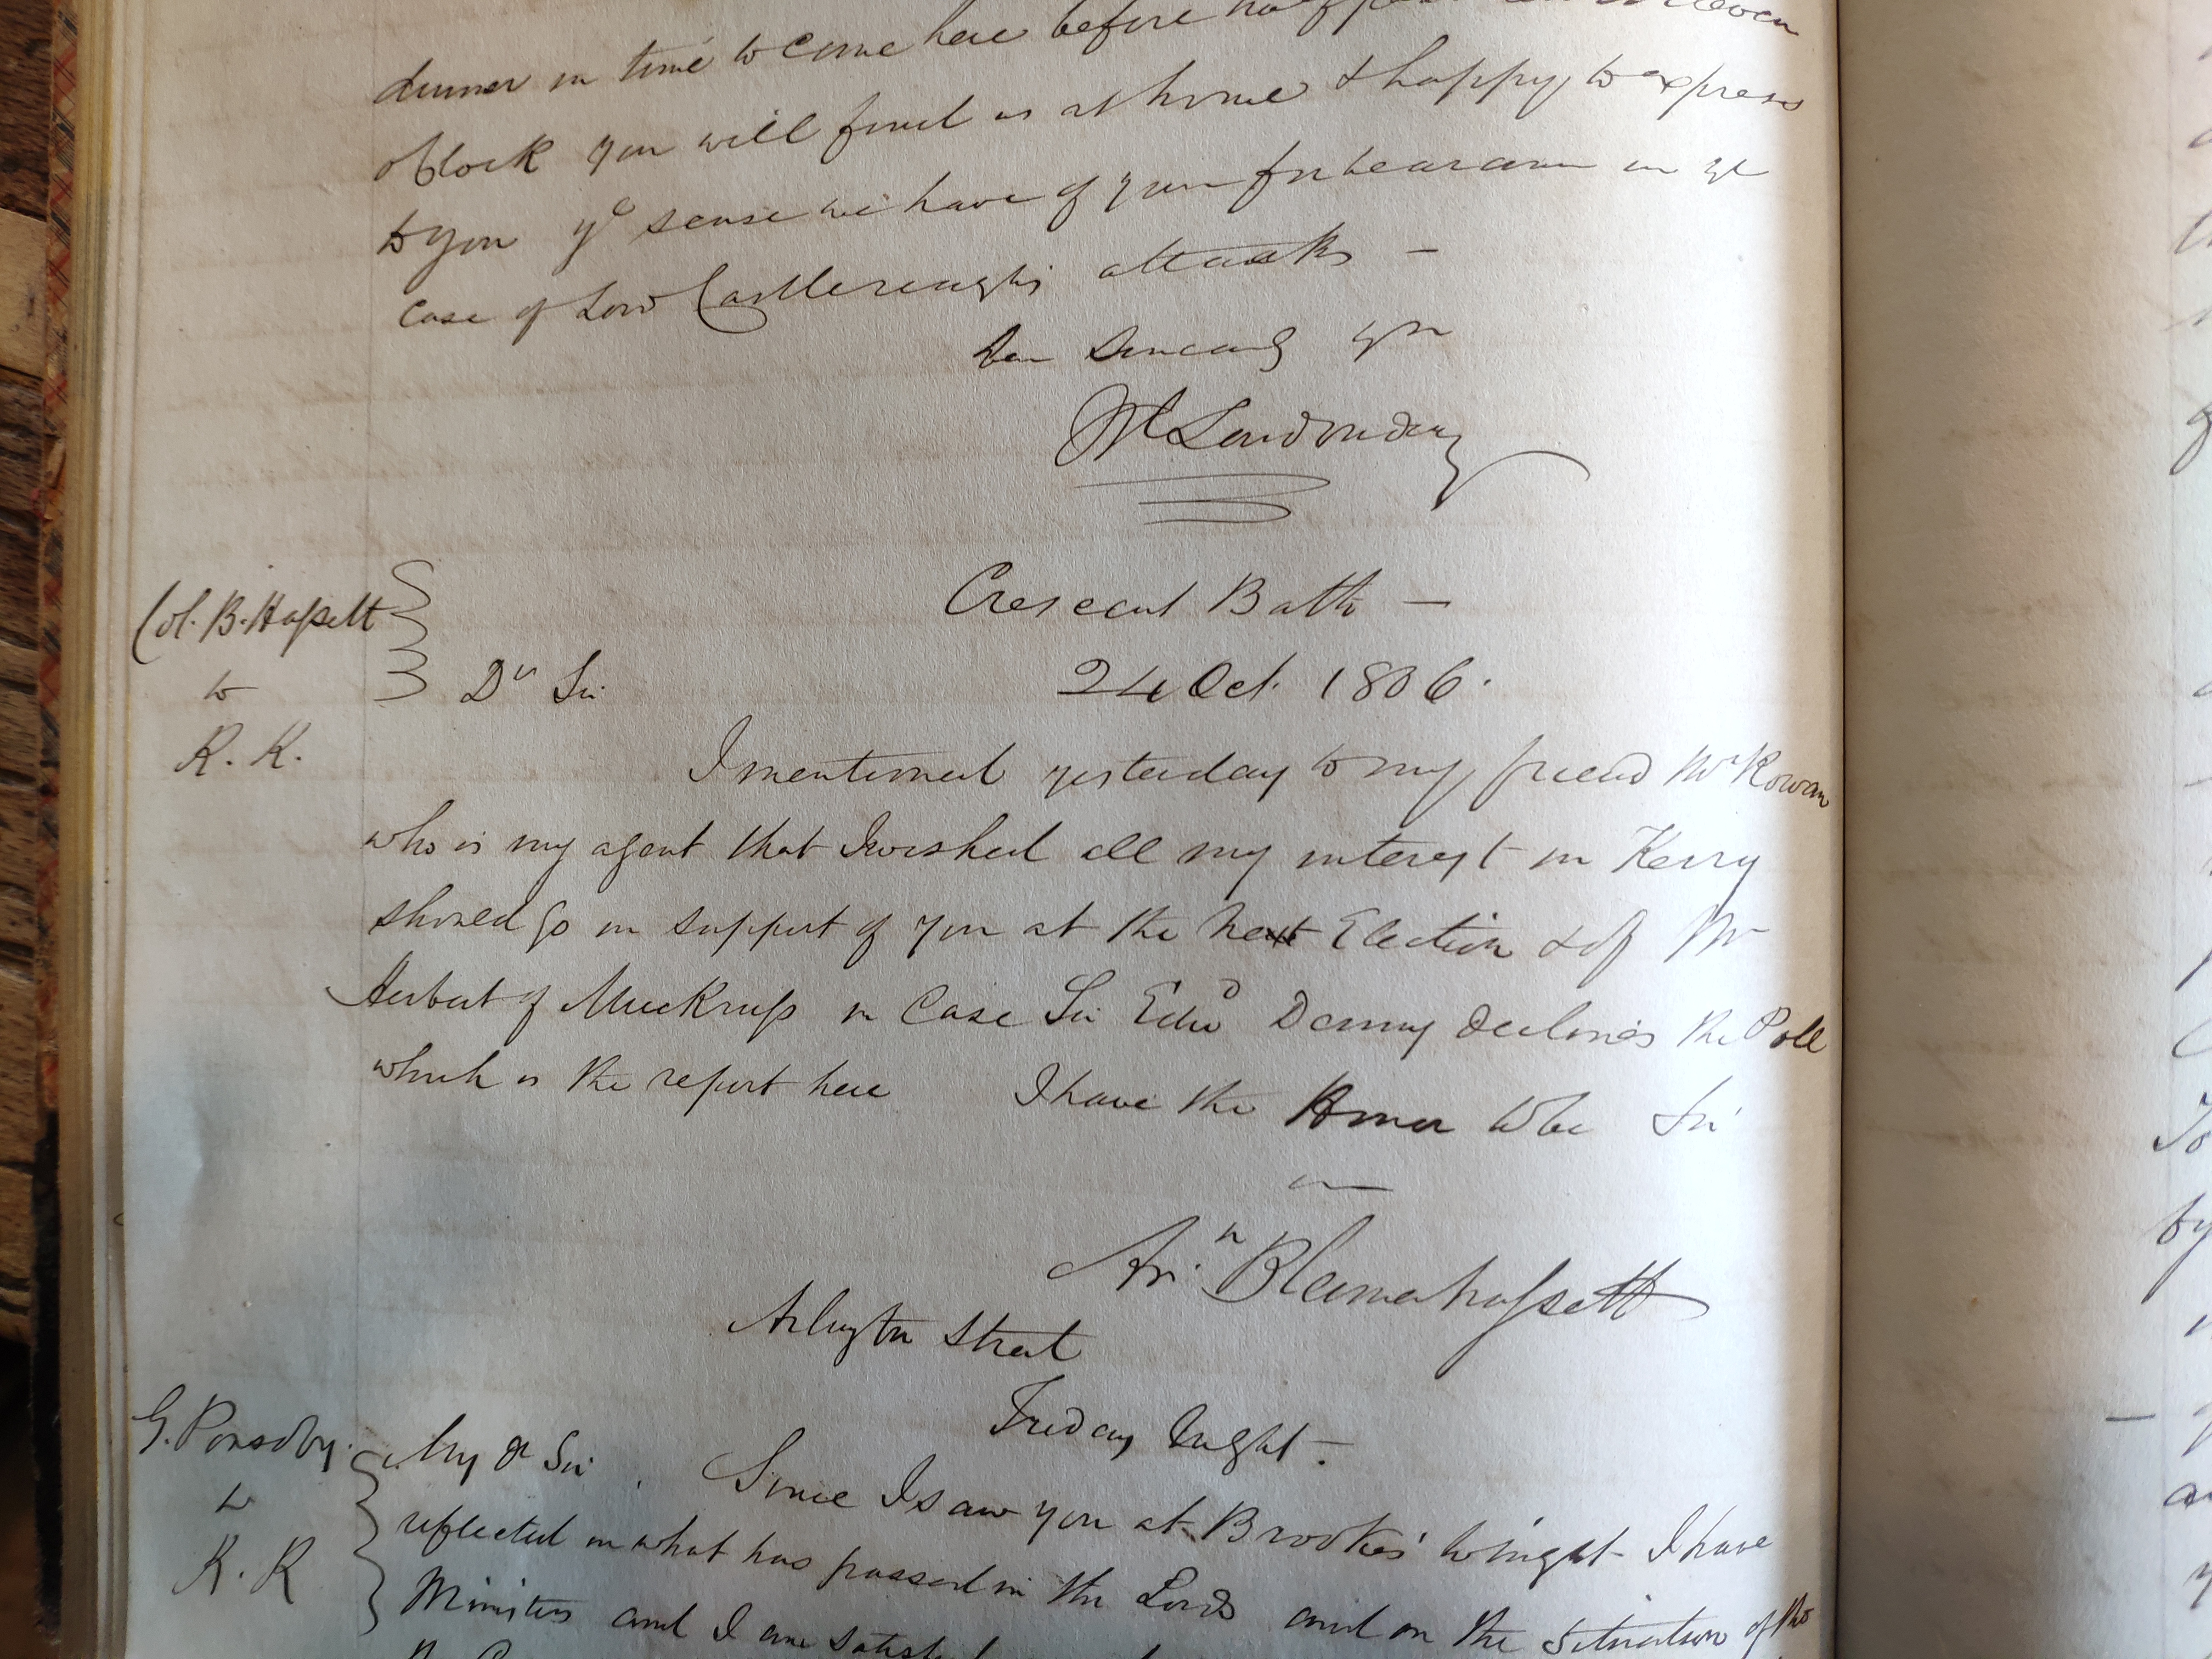 dinner in time to come here before half past
oClock you will find us at home & happy to express
to you ye sense we have of your forbearance in ye
case of Lord Castlereaghs attacks —
Sincerely yrs
Londonderry
Crescent Bath —
24 Oct. 1806.
Col. B. Hassett
to
R. K.
Dr Sir
I mentioned yesterday to my friend Mr Rowan
who is my agent that I wished all my interest in Kerry
should go in support of you at the next Election & of Mr
Herbert of Muckruss in Case Sir Edwd Denny declines the Poll
which is the report here I have the Honor to be Sir
Arr. Blennerhassett
Arlington Street
Friday Night —
G. Ponsonby
to
R. K
My Dr Sir. Since I saw you at Brookes' to night I have
reflected on what has passed in the Lords and on the Situation of the
Ministers and I am